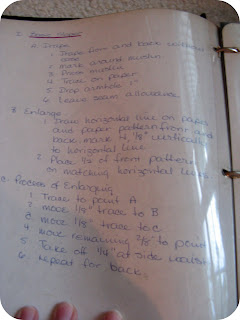 I.
A. Drape
1. Drape front and back without
ease
2. Mark around muslin
3. Press muslin
4. Trace on paper
5. Drop armhole
6. Leave seam allowance
B. Enlarge
1. Draw horizontal line on paper
and paper pattern front and
back, mark it, 1/8" vertically
to horizontal line
2. Place 1/2 of front pattern
on matching horizontal lines
C. Process of Enlarging
1. Trace to point A
2. move 1/8" trace to B
3. move 1/8" trace to C
4. move remaining 7/8" to point
5. Take off 1/4" at side waist
6. repeat for back